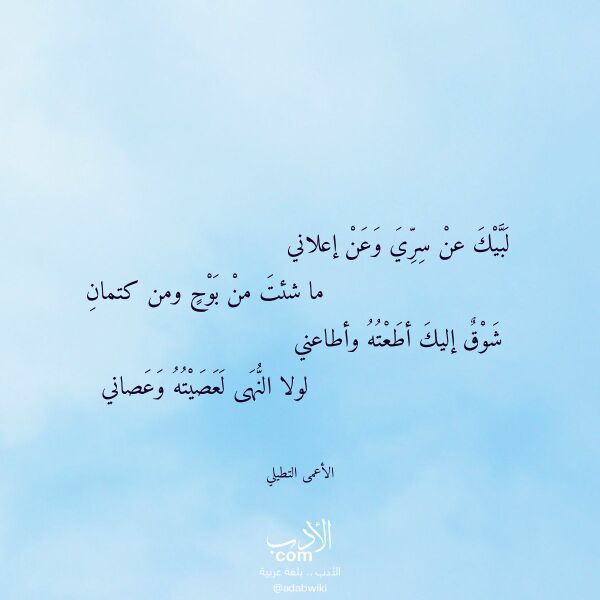 لَبَّيْكَ عنْ سِرِّيَ وَعَنْ إعلاني
ما شئتَ منْ بَوْحٍ ومن كتمانِ
شَوْقٌ إليكَ أطَعْتُهُ وأطاعني
لولا النُّهَى لَعَصَيْتُهُ وَعَصاني
الأعمى التطيلي
الأدب
com
الأدب .. بلغة عربية
@adabwiki